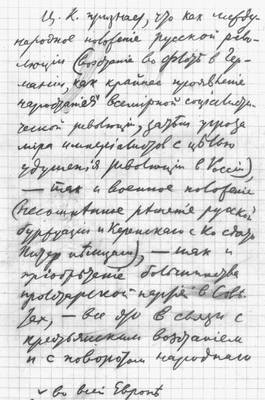 Ц. К. признает, что как между-
народное положение русской рево-
люции (восстание во флоте в Гер-
мании, как крайнее проявление
нарастания всемирной социалисти-
ческой революции, затем угроза
мира империалистов с целью
удушения революции в России),
— так и военное положение
(несомненное решение русской
буржуазии и Керенского с Ко сдать
Питер немцам), — так и
приобретение большинства
пролетарской партией в Сове-
тах, — все это в связи с
крестьянским восстанием
и с поворотом народного
v во всей Европе